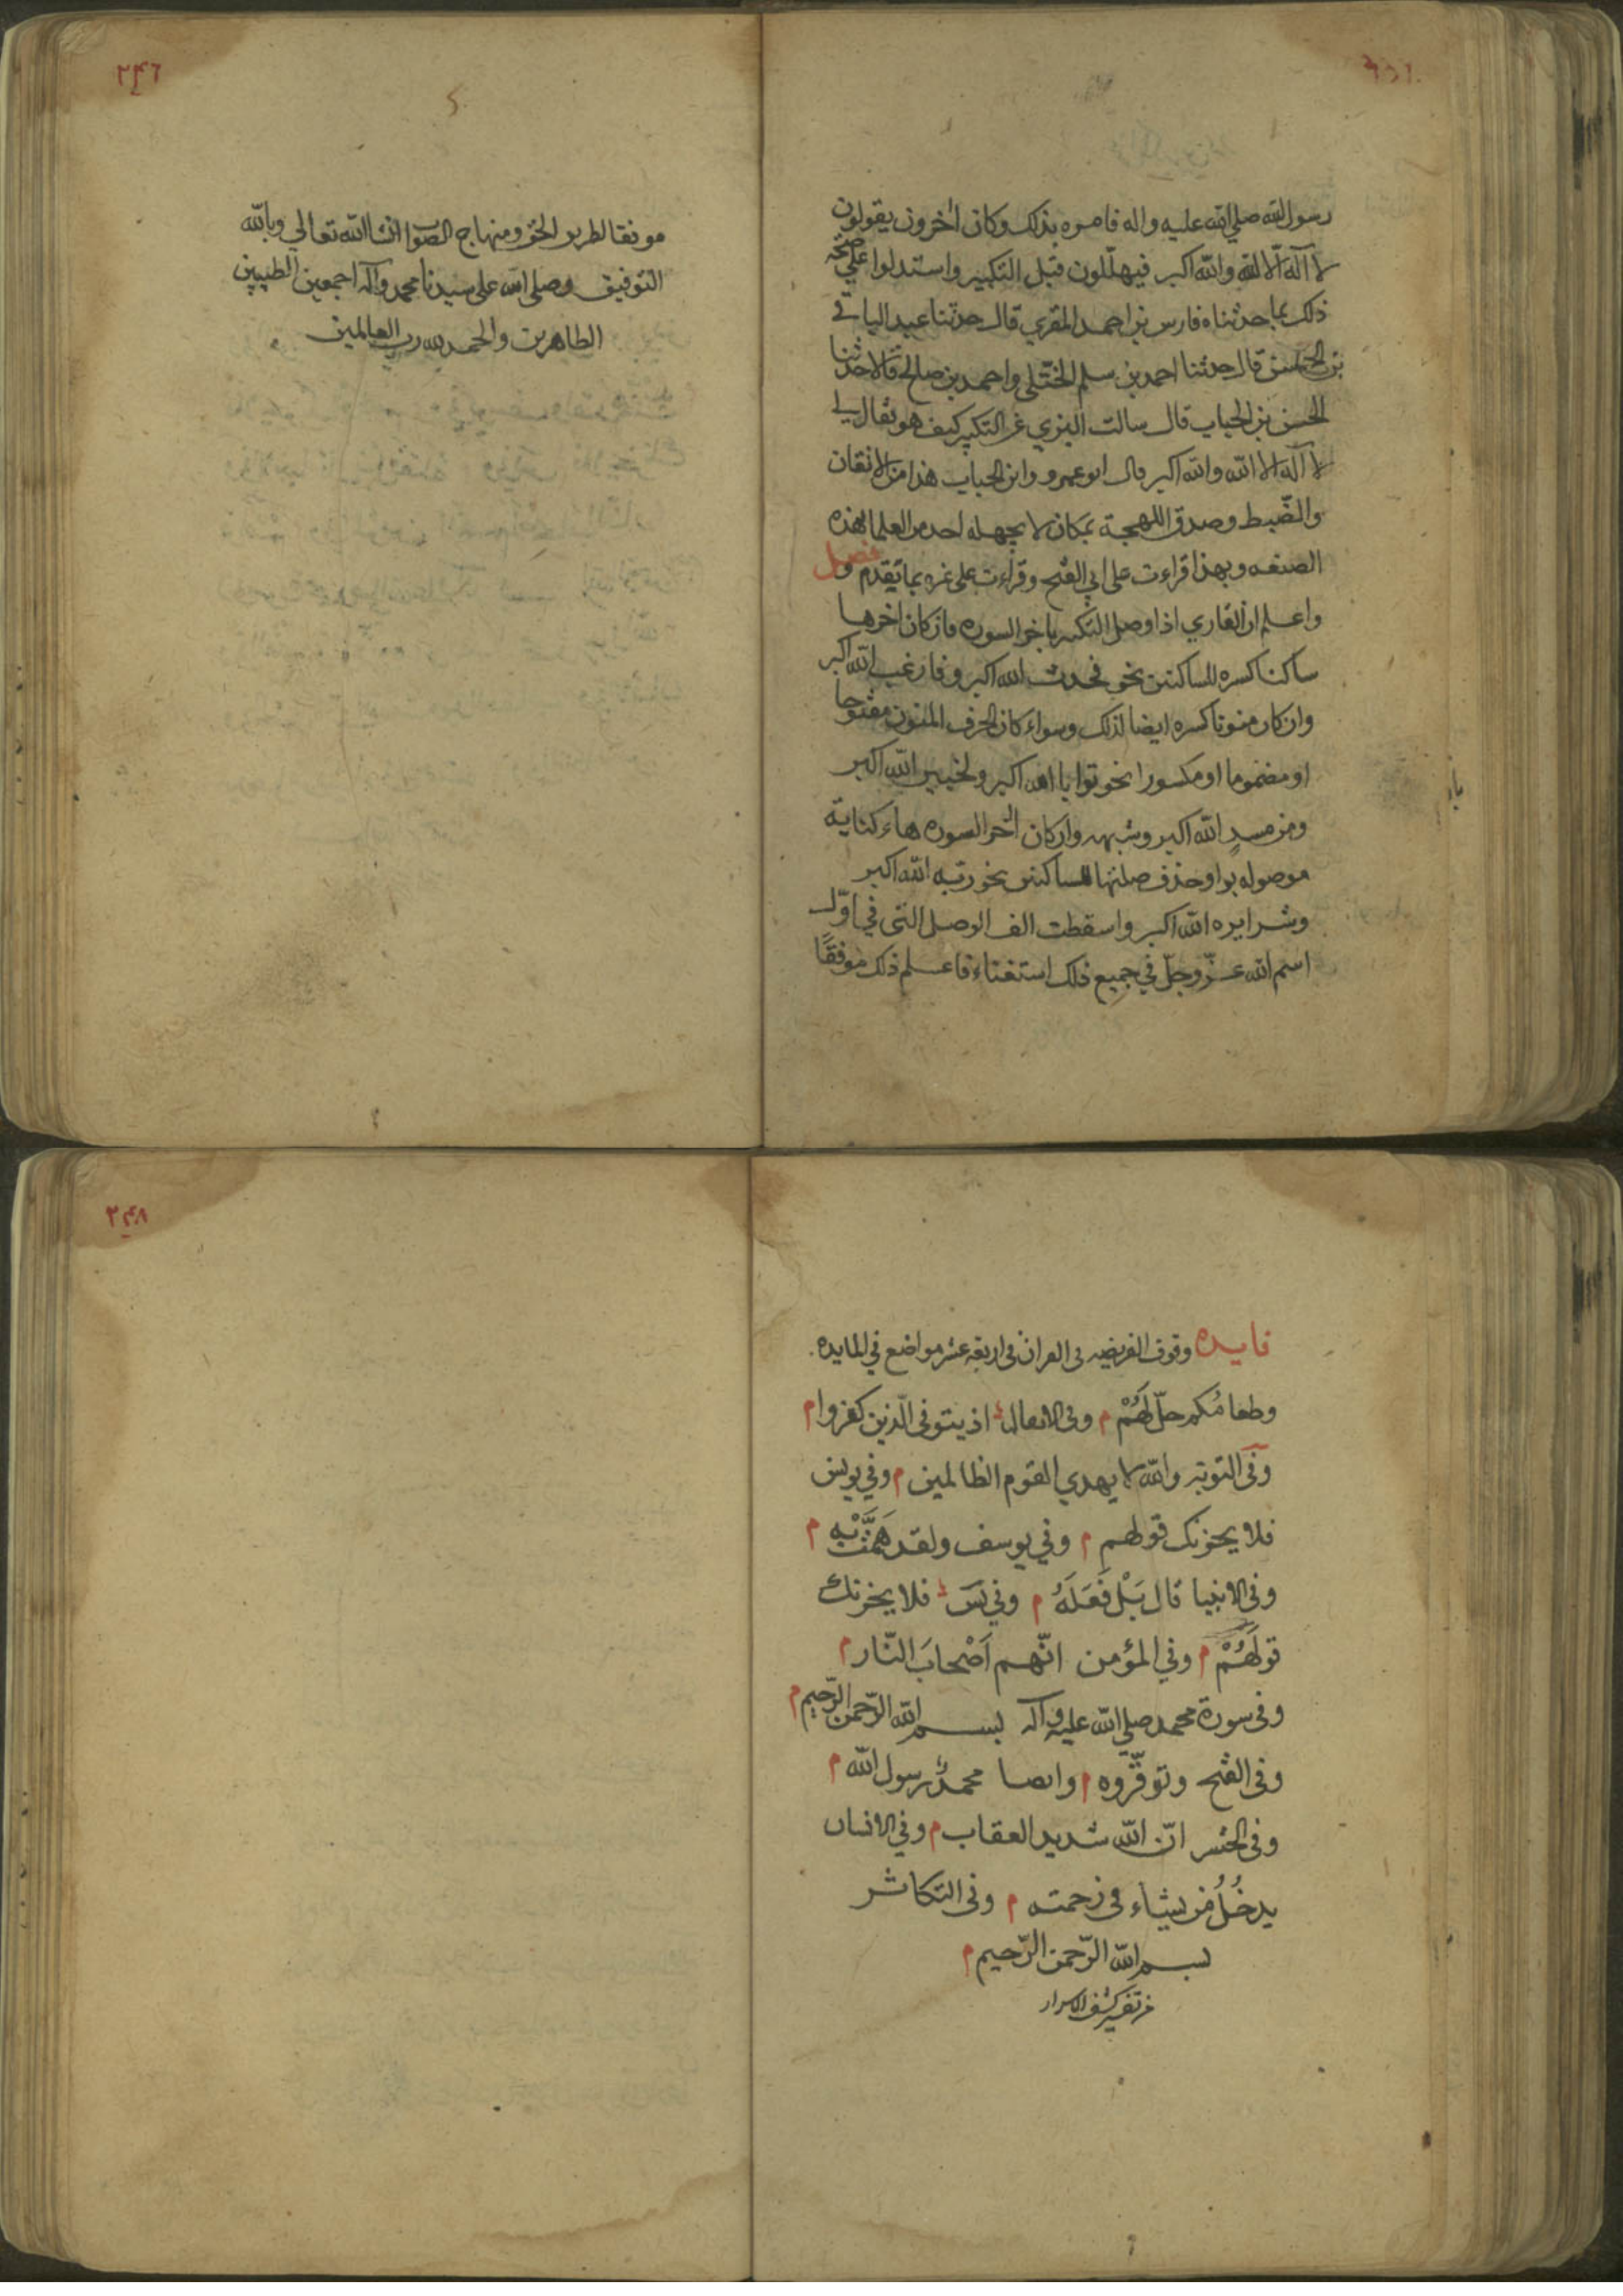 رسول الله صلي الله عليه واله فامره بذلك وكان اخرون يقولون
لا اله الا الله والله اكبر فيهللون قبل التكبير واستدلوا علي صحة
ذلك بما حدثناه فارس بن احمد المقري قال حدثنا عبد الباقي
بن الحسن قال حدثنا احمد بن سلم الختلي واحمد بن صالح قالا حدثنا
الحسن بن الحباب قال سالت البزي عن التكبير كيف هو فقال لي
لا اله الا الله والله اكبر قال ابو عمرو وابن الحباب هذا من الاتقان
والضبط وصدق اللهجة بمكان لا يجهله احد من العلما بهذه
الصنعه وبهذا قراءت على ابي الفتح وقراءت على غيره بما تقدم فصل
واعلم ان القاري اذا وصل التكبير باخر السوره فان كان اخرها
ساكنا كسره للساكنين نحو فحدث الله اكبر وفارغب الله اكبر
وان كان منونا كسره ايضا لذلك وسواء كان الحرف المنون مفتوحا
او مضموما او مكسورا نحو توابا الله اكبر ولخبير الله اكبر
ومن مسدٍ الله اكبر وشبهه وان كان اخر السوره هاء كناية
موصوله بواو حذف صلتها للساكنين نحو ربه الله اكبر
وشرا يره الله اكبر واسقطت الف الوصل التي في اوّل
اسم الله عزّ وجلّ في جميع ذلك استغناء فاعلم ذلك موفقًا
٢۴٦
موفقا لطريق الحق ومنهاج الصواب انشا الله تعالي وبالله
التوفيق وصلى الله على سيدنا محمد وآله اجمعين الطيبين
الطاهرين والحمد لله رب العالمين
فايده وقوف الفريضه في القران في اربعة عشر مواضع في المايده
وطعامُكم حلّ لَهُمْ م وفي الانفال اذ يتوفى الّذين كفروا م
وفي التوبه والله لا يهدي القوم الظالمين م وفي يونس
فلا يحزنك قولهم م وفي يوسف ولقد هَمَّتْ بِهِ م
وفي الانبيا قال بَلْ فَعَلَهُ م وفي يسَ فلا يحزنك
قولهُمْ م وفي المؤمن انّهم اَصْحابَ النّار م
وفي سورة محمد صلي الله عليه وآله بسم الله الرّحمن الرّحيم م
وفي الفتح وتوقّروه م وايضا محمدٌ رسول الله م
وفي الحشر انّ الله شديد العقاب م وفي الانسان
يدخُلُ من يشاء في رحمته م وفي التكاثر
بسم الله الرّحمن الرّحيم م
من تفسير كشف الاسرار
٢۴٨